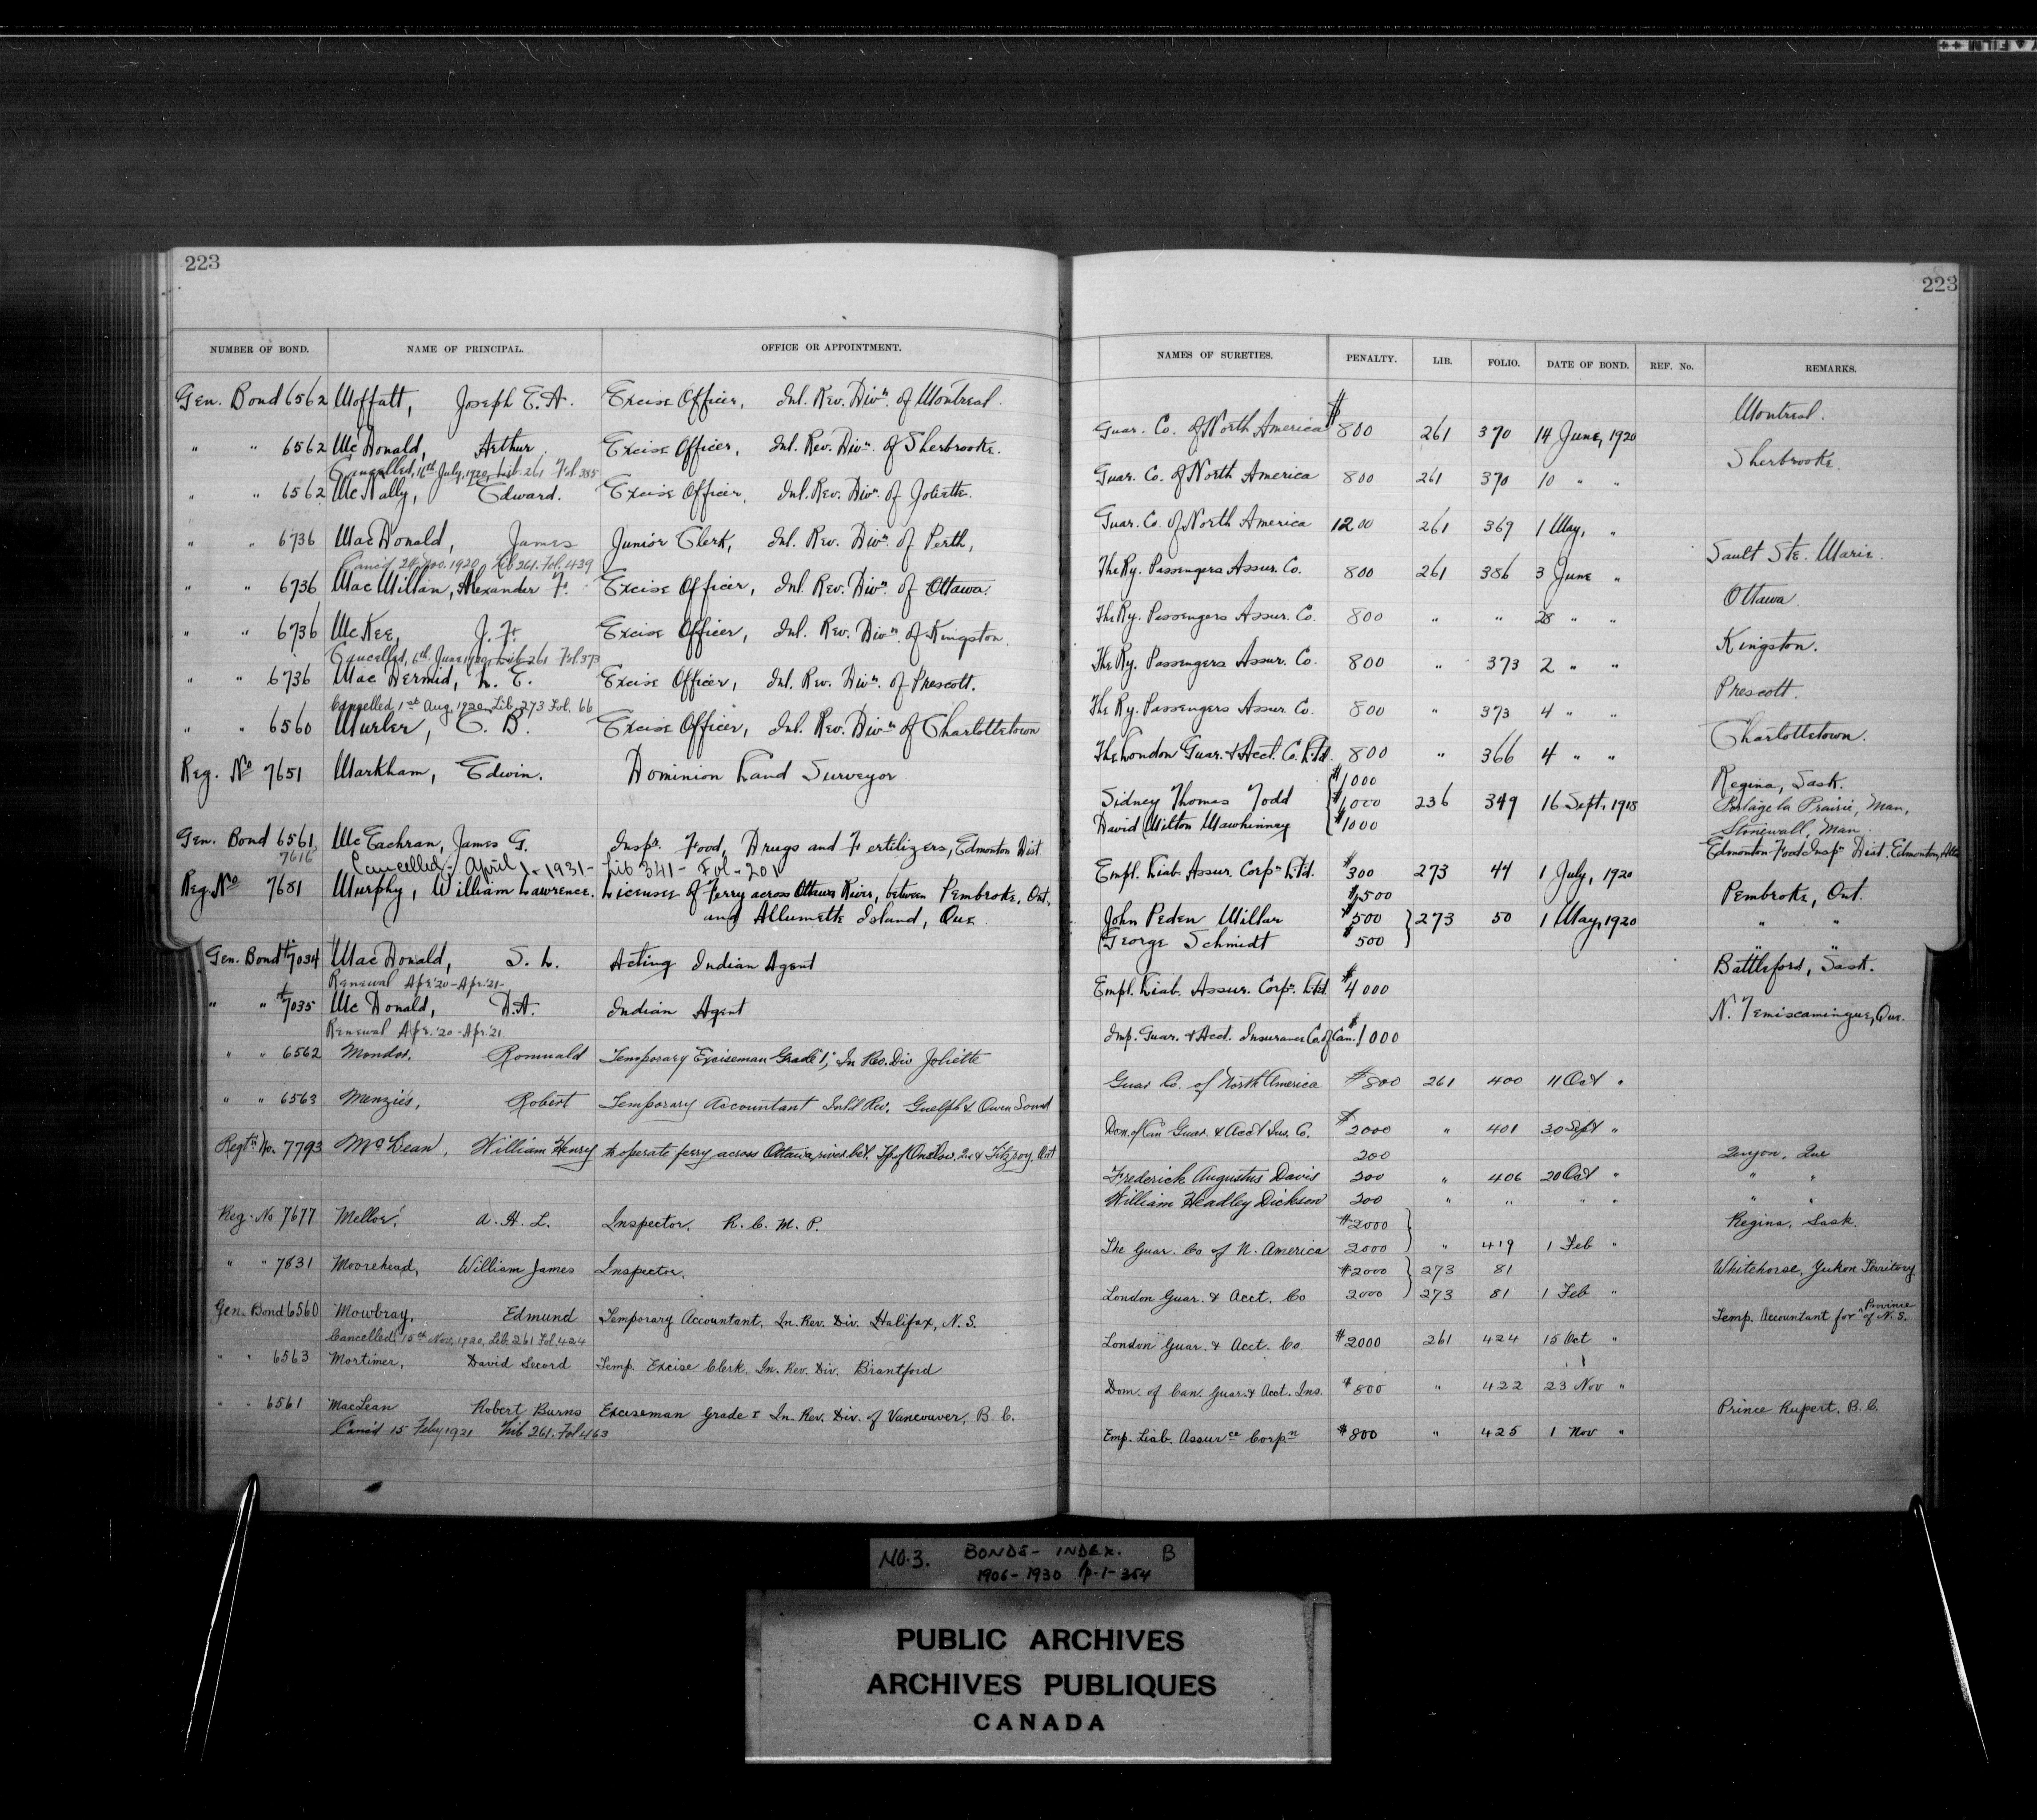 223
NUMBER OF BOND. NAME OF PRINCIPAL. OFFICE OR APPOINTMENT.
Gen. Bond 6562 Moffatt, Joseph E. A. Excise Officer, Inl. Rev. Divn. of Montreal.
" " 6562 McDonald, Arthur. Excise Officer, Inl. Rev. Divn. of Sherbrooke.
Cancelled, 16th July, 1920, Lib. 261 Fol. 385
" " 6562 McNally, Edward. Excise Officer, Inl. Rev. Divn. of Joliette.
" " 6736 MacDonald, James Junior Clerk, Inl. Rev. Divn. of Perth,
Canc'd 24 Nov. 1920 Lib 261. Fol. 439
" " 6736 MacMillan, Alexander F. Excise Officer, Inl. Rev. Divn. of Ottawa.
" " 6736 McKee, J. F. Excise Officer, Inl. Rev. Divn. of Kingston.
Cancelled, 6th June 1920, Lib 261 Fol. 373
" " 6736 MacDermid, L. E. Excise Officer, Inl. Rev. Divn. of Prescott.
Cancelled 1st Aug, 1920, Lib. 273 Fol. 66
" " 6560 C. B. Excise Officer, Inl. Rev. Divn. of Charlottetown
Reg. No 7651 Markham, Edwin. Dominion Land Surveyor
Gen. Bond 6561, McEachran, James G. Inspr. Food, Drugs and Fertilizers, Edmonton Dist.
7616 Cancelled:- April 1- 1931- Lib 341- Fol- 201
Reg. No 7681 Murphy, William Lawrence. Licensee of Ferry across Ottawa River, between Pembroke, Ont,
and Allumette Island, Que.
Gen. Bond 7034 MacDonald, S. L. Acting Indian Agent
Renewal Apr. '20 - Apr. '21 -
" " 7035 McDonald, D. A. Indian Agent
Renewal Apr. '20 - Apr. '21
" " 6562 Mondor, Romuald Temporary Exciseman Grade "1", In Rev. Div Joliette
" " 6563 Menzies, Robert Temporary Accountant Inl'd Rev. Guelph & Owen Sound
Regtn No. 7793 McLean, William Henry to operate ferry across Ottawa river bet. Tp of Onslow, Que & Fitzroy, Ont
Reg. No 7677 Mellor, A. H. L. Inspector, R. C. M. P.
" " 7831 Moorehead, William James Inspector,
Gen. Bond 6560 Mowbray, Edmund Temporary Accountant, In. Rev. Div. Halifax, N.S.
Cancelled, 15th Nov, 1920, Lib 261 Fol. 424
" " 6563 Mortimer, David Secord Temp. Excise Clerk, In. Rev. Div. Brantford
" " 6561 MacLean Robert Burns Exciseman Grade I In. Rev. Div. of Vancouver, B. C.
Canc'd 15 Feby 1921 Lib 261. Fol 463
223
NAMES OF SURETIES. PENALTY. LIB. FOLIO. DATE OF BOND. REF. No. REMARKS.
Montreal.
Guar. Co. of North America $800 261 370 14 June, 1920
Sherbrooke.
Guar. Co. of North America 800 261 370 10 " "
Guar. Co. of North America 1200 261 369 1 May, "
Sault Ste. Marie.
The Ry. Passengers Assur. Co. 800 261 386 3 June "
Ottawa.
The Ry. Passengers Assur. Co. 800 " " 28 " "
Kingston.
The Ry. Passengers Assur. Co. 800 " 373 2 " "
Prescott.
The Ry. Passengers Assur. Co. 800 " 373 4 " "
Charlottetown.
The London Guar. & Acct. Co. Ltd. 800 " 366 4 " "
$1000 Regina, Sask.
Sidney Thomas Todd $1000 236 349 16 Sept, 1918 Portage la Prairie, Man,
David Milton Mawhinney $1000 Stonewall, Man.
Edmonton Food Inspn Dist. Edmonton, Alta
Empl. Liab. Assur. Corpn Ltd. $300 273 44 1 July, 1920
$500 Pembroke, Ont.
John Peden Millar $500 273 50 1 May, 1920 " "
George Schmidt $500 " "
Battleford, Sask.
Empl. Liab. Assur. Corpn. Ltd. $4000
N. Temiscamingue, Que.
Imp. Guar. & Acct. Insurance Co. of Can. $1000
Guar Co. of North America $800 261 400 11 Oct "
Dom. of Can Guar. & Acc't Ins. Co. $2000 " 401 30 Sept "
200 Quyon, Que
Frederick Augustus Davis 200 " 406 20 Oct " " "
William Headley Dickson 200 " " " " " "
$2000 Regina, Sask.
The Guar. Co of N. America 2000 " 419 1 Feb "
$2000 273 81 Whitehorse, Yukon Territory
London Guar. & Acct. Co 2000 273 81 1 Feb "
Temp. Accountant for Province of N.S.
London Guar. & Acct. Co $2000 261 424 15 Oct "
Dom. of Can. Guar. & Acct. Ins. $800 " 422 23 Nov "
Prince Rupert, B.C.
Emp. Liab. Assurce Corpn $800 " 425 1 Nov "
NO. 3. BONDS - INDEX. B
1906-1930 p. 1-354
PUBLIC ARCHIVES
ARCHIVES PUBLIQUES
CANADA